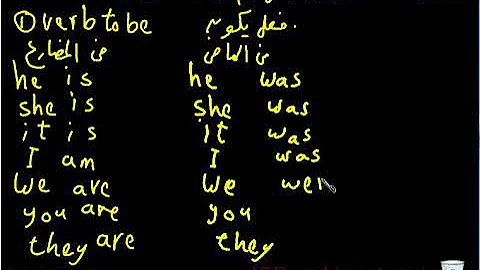 ① verb to be فعل يكون.
في المضارع في الماضي
he is he was
she is she was
it is it was
I am I was
We are We wer
you are you
they are they